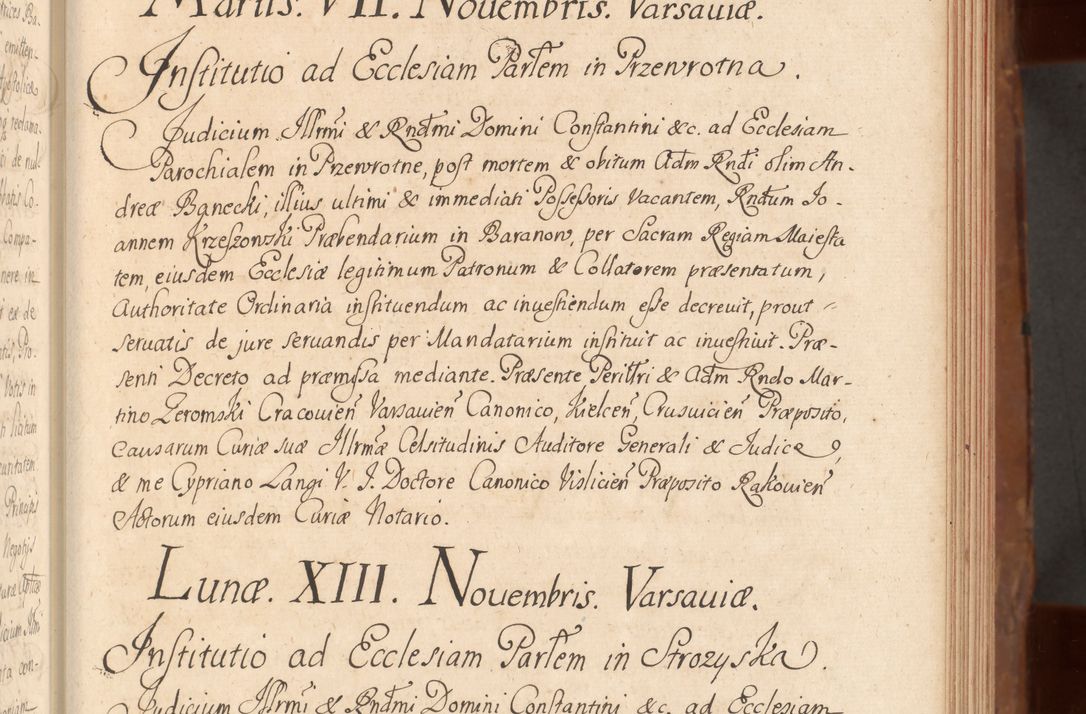 Martis. VII. Nouembris. Varsauiæ.
Institutio ad Ecclesiam Parlem in Przewrotna.
Judicium Illrmi & Rndmi Domini Constantini &c. ad Ecclesiam
Parochialem in Przewrotne, post mortem & obitum Adm Rndi olim An-
dreæ Banecki, illius ultimi & immediati Possessoris vacantem, Rndum Jo-
annem Krzeszowski Præbendarium in Baranow, per Sacram Regiam Maiesta
tem, eiusdem Ecclesiæ legitimum Patronum & Collatorem præsentatum,
Authoritate Ordinaria instituendum ac inuestiendum esse decreuit, prout
seruatis de jure seruandis per Mandatarium instituit ac inuestiuit. Præ-
senti Decreto ad præmissa mediante. Præsente Perillri & Adm Rndo Mar-
tino Zeromski Cracouien Varsauien Canonico, Kielcen, Crusuicien Præposito,
causarum Curiæ suæ Illrmæ Celsitudinis Auditore Generali & Judice,
& me Cypriano Langi V. J. Doctore Canonico Vislicien Præposito Rakouien
Actorum eiusdem Curiæ Notario.
Lunæ. XIII. Nouembris. Varsauiæ.
Institutio ad Ecclesiam Parlem in Strozyska.
Judicium Illrmi & Rndmi Domini Constantini &c. ad Ecclesiam